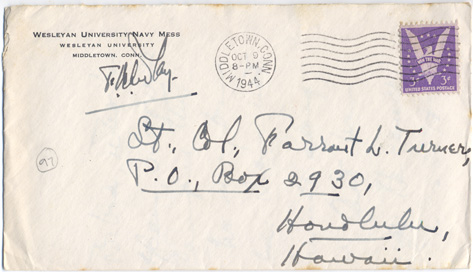 WESLEYAN UNIVERSITY NAVY MESS
WESLEYAN UNIVERSITY
MIDDLETOWN, CONN.
MIDDLETOWN, CONN.
OCT 9
8-PM
1944
WIN THE WAR
3¢
UNITED STATES POSTAGE
97
Lt. Col. Farrant L. Turner,
P.O., Box 2930,
Honolulu,
Hawaii.